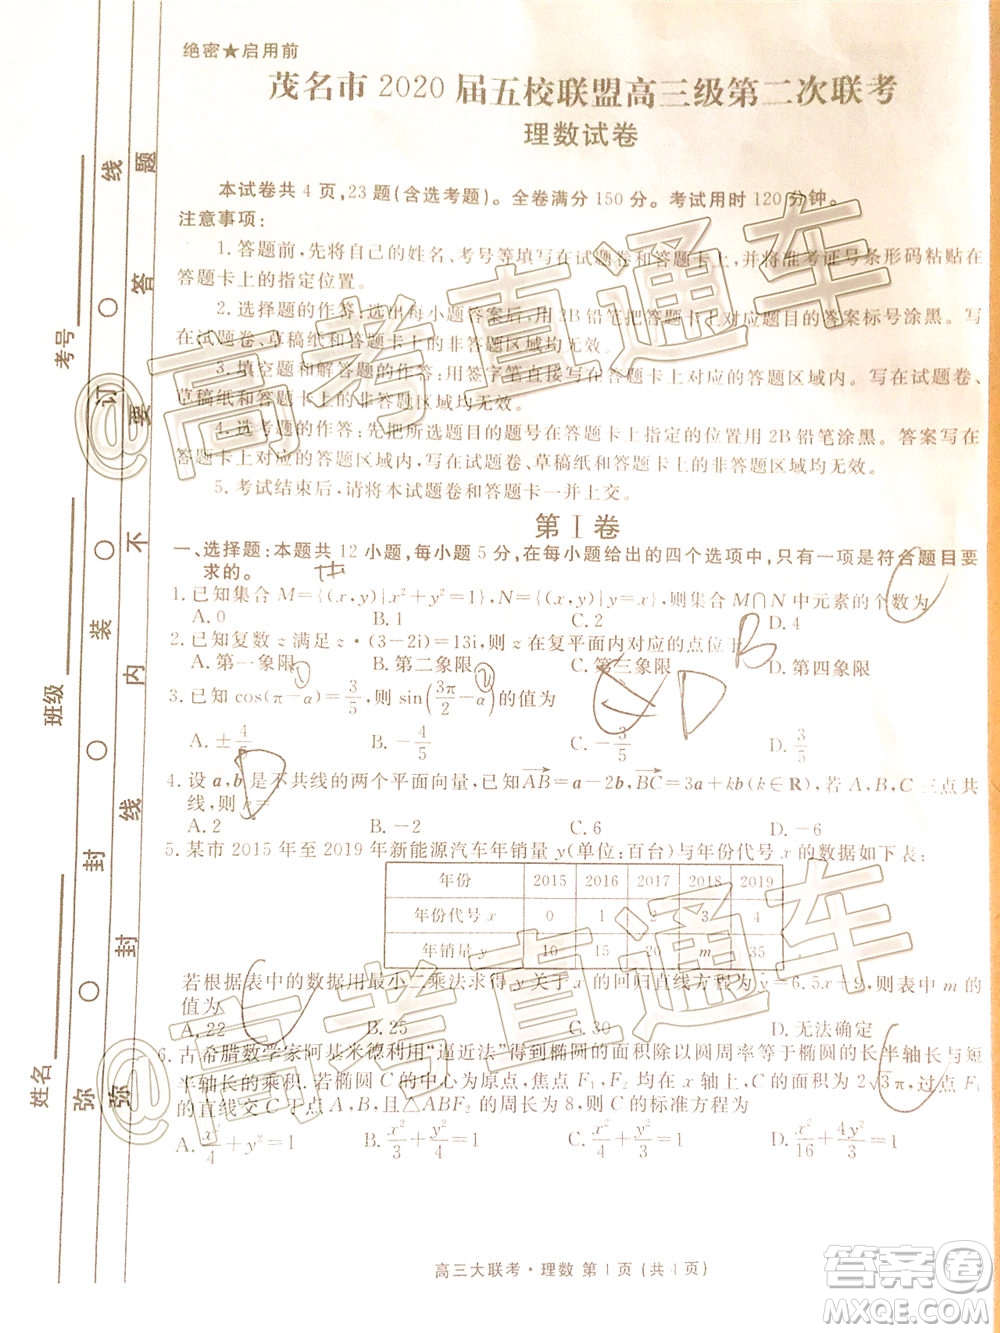 绝密★启用前
茂名市 2020 届五校联盟高三级第二次联考
理数试卷
本试卷共 4 页,23题(含选考题)。全卷满分 150 分。考试用时 120 分钟。
注意事项:
1. 答题前,先将自己的姓名、考号等填写在试题卷和答题卡上,并将准考证号条形码粘贴在
答题卡上的指定位置。
2. 选择题的作答:每小题选出答案后,用 2B 铅笔把答题卡上对应题目的答案标号涂黑。写
在试题卷、草稿纸和答题卡上的非答题区域均无效。
3. 填空题和解答题的作答:用签字笔直接写在答题卡上对应的答题区域内。写在试题卷、
草稿纸和答题卡上的非答题区域均无效。
4. 选考题的作答:先把所选题目的题号在答题卡上指定的位置用 2B 铅笔涂黑。答案写在
答题卡上对应的答题区域内,写在试题卷、草稿纸和答题卡上的非答题区域均无效。
5. 考试结束后,请将本试题卷和答题卡一并上交。
第 Ⅰ 卷
一、选择题:本题共 12 小题,每小题 5 分,在每小题给出的四个选项中,只有一项是符合题目要
求的。
1. 已知集合 M={(x,y)|x²+y²=1},N={(x,y)|y=x},则集合 M∩N 中元素的个数为
A. 0 B. 1 C. 2 D. 4
2. 已知复数 z 满足 z·(3-2i)=13i,则 z 在复平面内对应的点位于
B
A. 第一象限 B. 第二象限 C. 第三象限 D. 第四象限
3. 已知 cos(π-α)=3/5,则 sin(3π/2-α)的值为
D
A. ±4/5 B. -4/5 C. -3/5 D. 3/5
4. 设 a,b 是不共线的两个平面向量,已知AB=a-2b,BC=3a+kb(k∈R),若 A,B,C 三点共
线,则 k=
D
A. 2 B. -2 C. 6 D. -6
5. 某市 2015 年至 2019 年新能源汽车年销量 y(单位:百台)与年份代号 x 的数据如下表:
年份 2015 2016 2017 2018 2019
年份代号 x 0 1 2 3 4
年销量 y 10 15 20 m 35
若根据表中的数据用最小二乘法求得 y 关于 x 的回归直线方程为 y=6.5x+9,则表中 m 的
值为
A. 22 B. 25 C. 30 D. 无法确定
6. 古希腊数学家阿基米德利用“逼近法”得到椭圆的面积除以圆周率等于椭圆的长半轴长与短
半轴长的乘积。若椭圆 C 的中心为原点,焦点 F₁,F₂ 在 x 轴上,椭圆 C 的面积为 2√3π,过点 F₁
的直线交 C 于点 A,B,且△ABF₂ 的周长为 8,则 C 的标准方程为
A. x²/4+y²=1 B. x²/3+y²/4=1 C. x²/4+y²/3=1 D. x²/16+4y²/3=1
高三大联考·理数 第 1 页(共 4 页)
考号
班级
姓名
弥 封 装 订 线
弥 封 线 内 不 要 答 题
@高考直通车
@高考直通车
答案圈
MXQE.COM